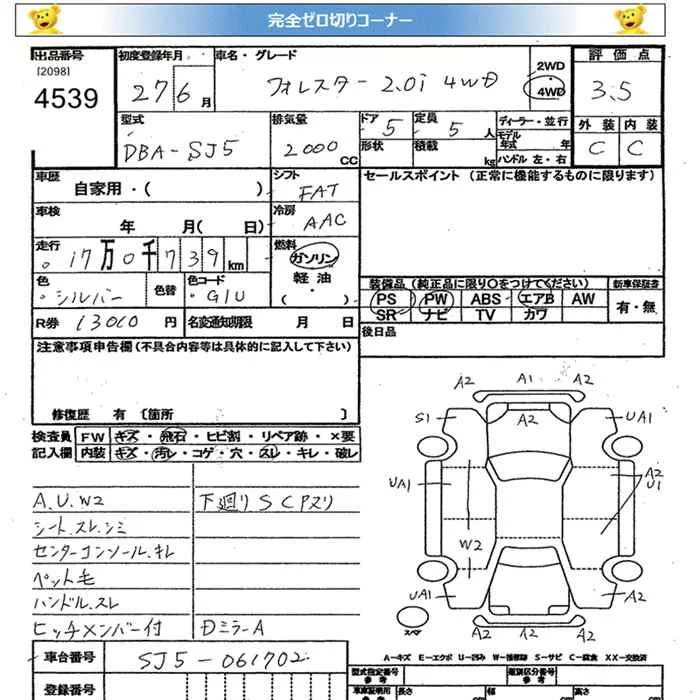 完全ゼロ切りコーナー
出品番号 初度登録年月 車名・グレード 評価点
[2098]
4539
27 6月
フォレスター 2.0i 4WD
2WD
4WD
3.5
型式 排気量 ドア 定員 ディーラー・並行
DBA-SJ5 2000CC 5 5人
モデル年式 年
形状 積載 kg ハンドル 左・右
外装 内装
C C
車歴 シフト セールスポイント (正常に機能するものに限ります)
自家用・( ) FAT
車検 冷房
年 月( 日) AAC
走行 燃料
17万0千739km ガソリン
軽油
・( )
色 色替 色コード
シルバー G1U
装備品(純正品に限り○をつけてください) 新車保証書
PS PW ABS・エアB AW 有・無
SR ナビ TV カワ
R券 13010円 名変通知期限 月 日
後日品
注意事項申告欄(不具合内容等は具体的に記入して下さい)
修復歴 有 〔箇所 〕
検査員 FW キズ・飛石・ヒビ割・リペア跡・×要
記入欄 内装 キズ・汚レ・コゲ・穴・スレ・キレ・破レ
A.U.W2 下廻りSCPスリ
シート.スレ.シミ
センターコンソール.キレ
ペット毛
ハンドル.スレ
ヒッチメンバー付 Dミラー A
A2 A1 A2
S1 A2 UA1
UA1 A2
U1
W2
UA1 A2
A2 A2 A2
スペア
A-キズ E-エクボ U-凹み W-補修跡 S-サビ C-腐食 XX-交換済
車台番号 SJ5-061702
型式指定番号 参考 類別区分番号 参考
登録番号 車庫証明用 参考 長さ 幅 高さ